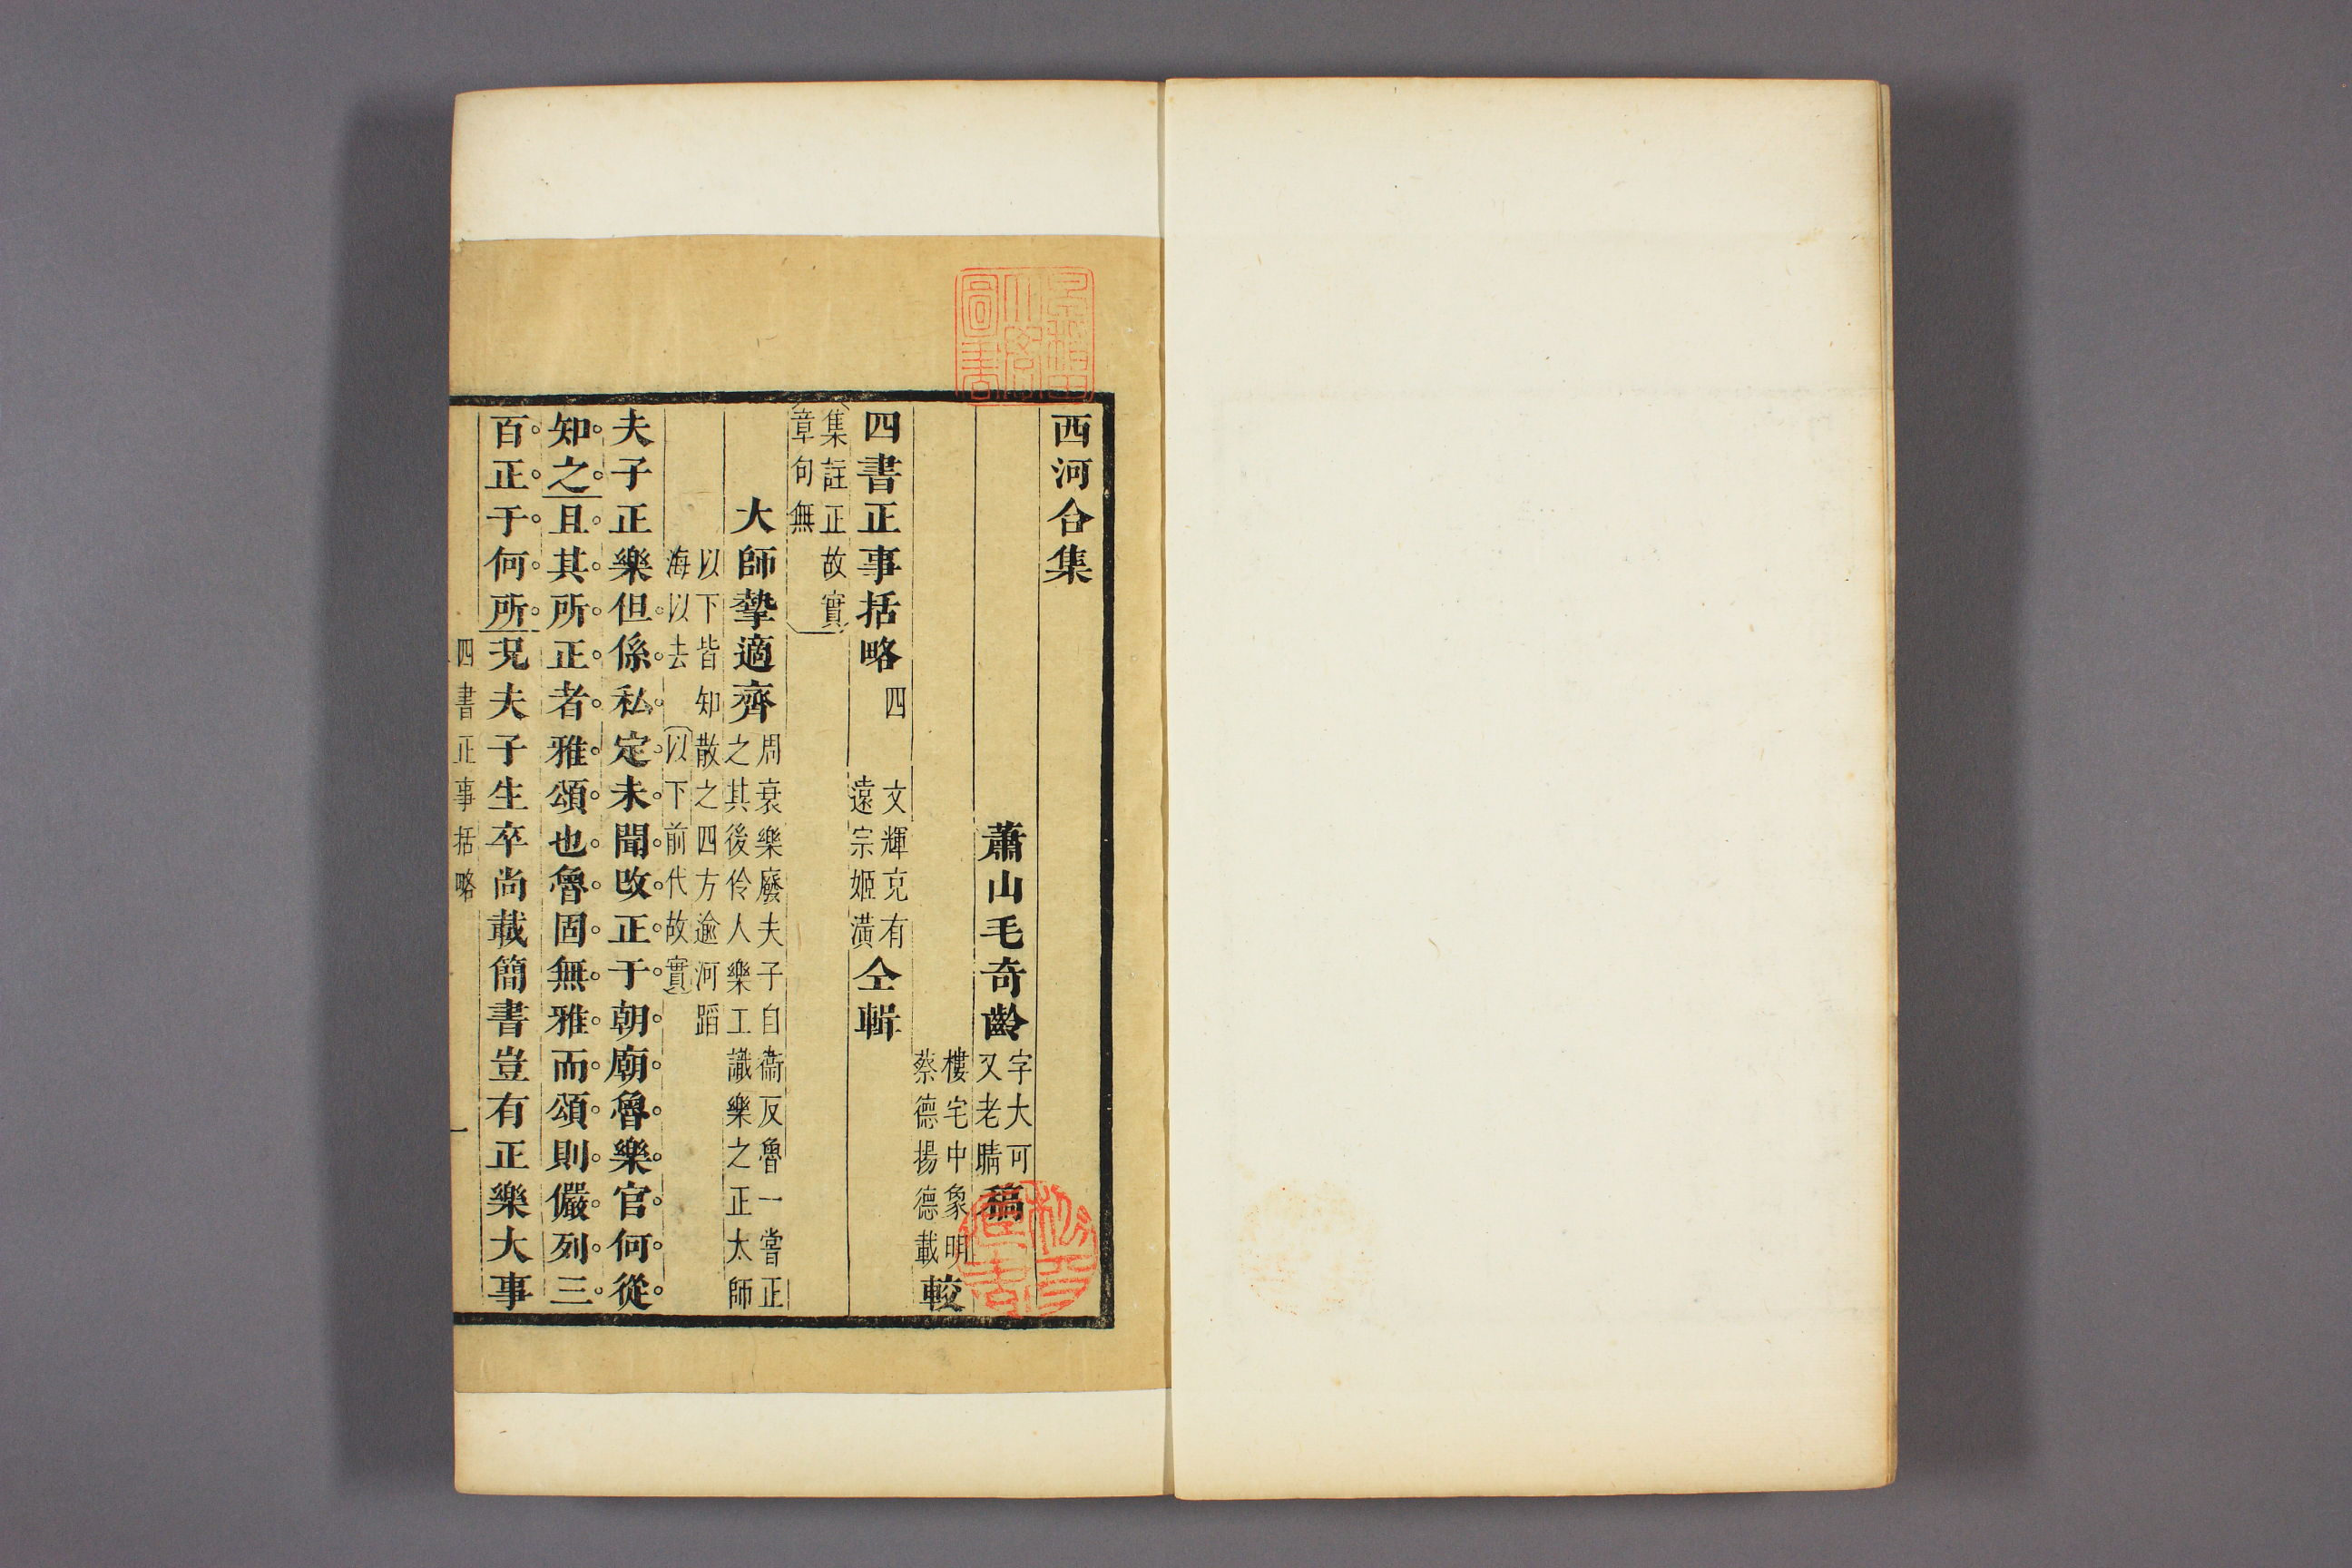 西河合集
蕭山毛奇齡字大可又老晴稿
樓宅中象明蔡德揚德載較
四書正事括略四 文輝克有遠宗姬潢仝輯
集註正故實章句無
大師摯適齊周衰樂廢夫子自衞反魯一嘗正之其後伶人樂工識樂之正太師
以下皆知散之四方逾河蹈海以去以下前代故實
夫子正樂但係私定未聞改正于朝廟魯樂官何從
知之且其所正者雅頌也魯固無雅而頌則儼列三
百正于何所況夫子生卒尚載簡書豈有正樂大事
四書正事括略 一
圖書